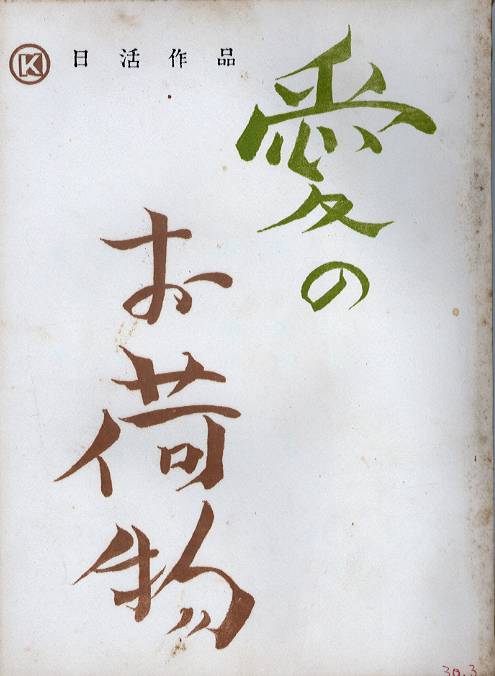 K 日活作品
愛の
お荷物
30.3